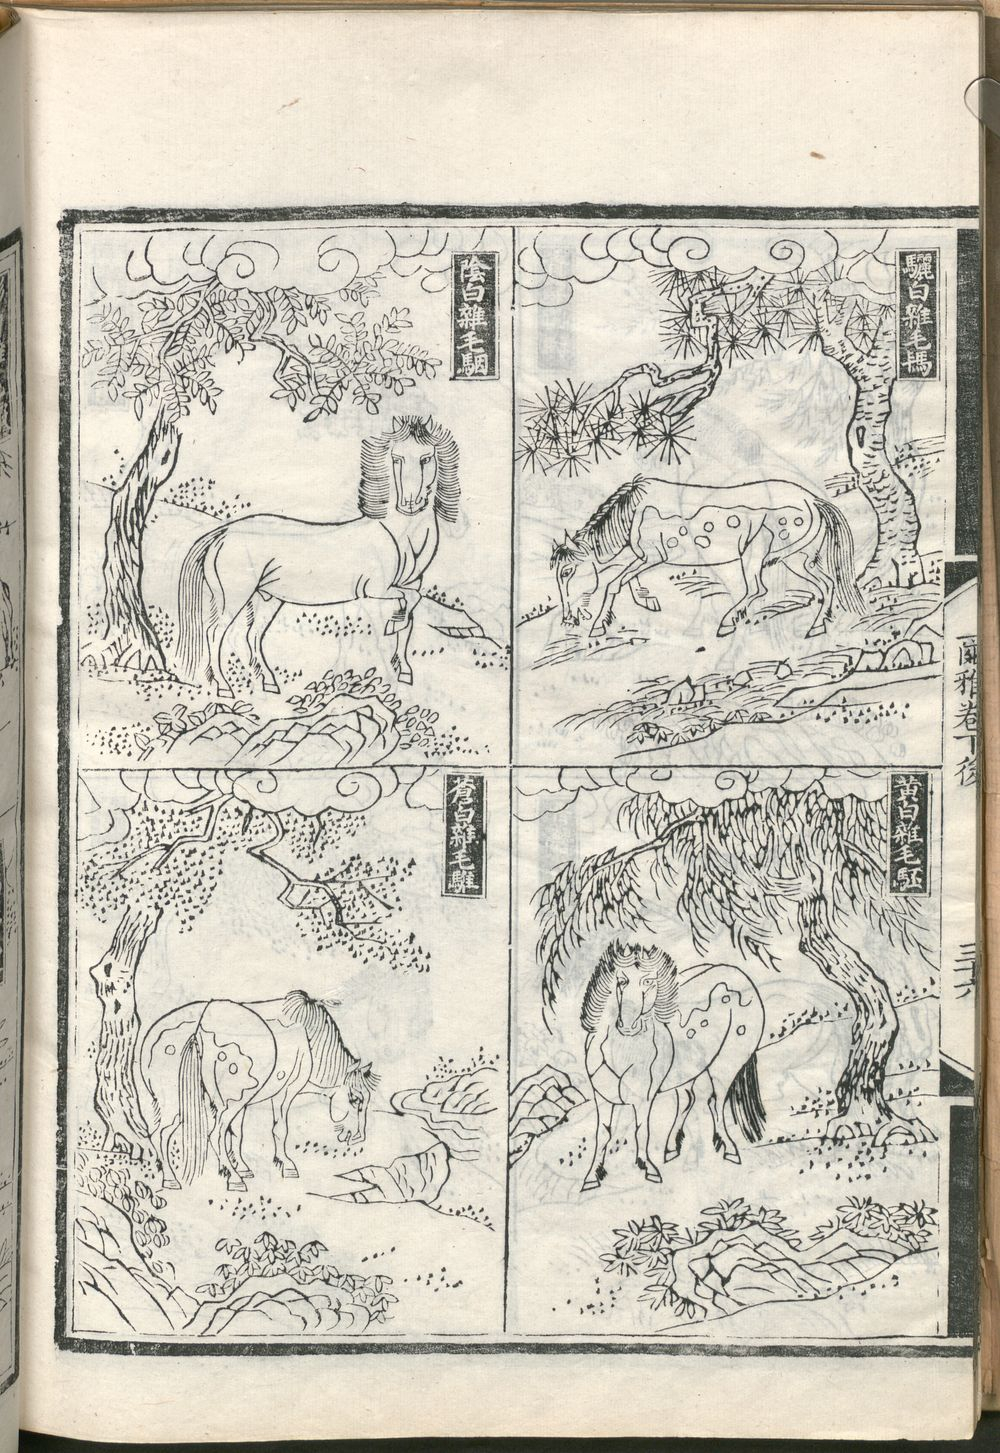 爾雅卷下後
三十六
驪白雜毛
陰白雜毛駰
黃白雜毛駓
蒼白雜毛騅